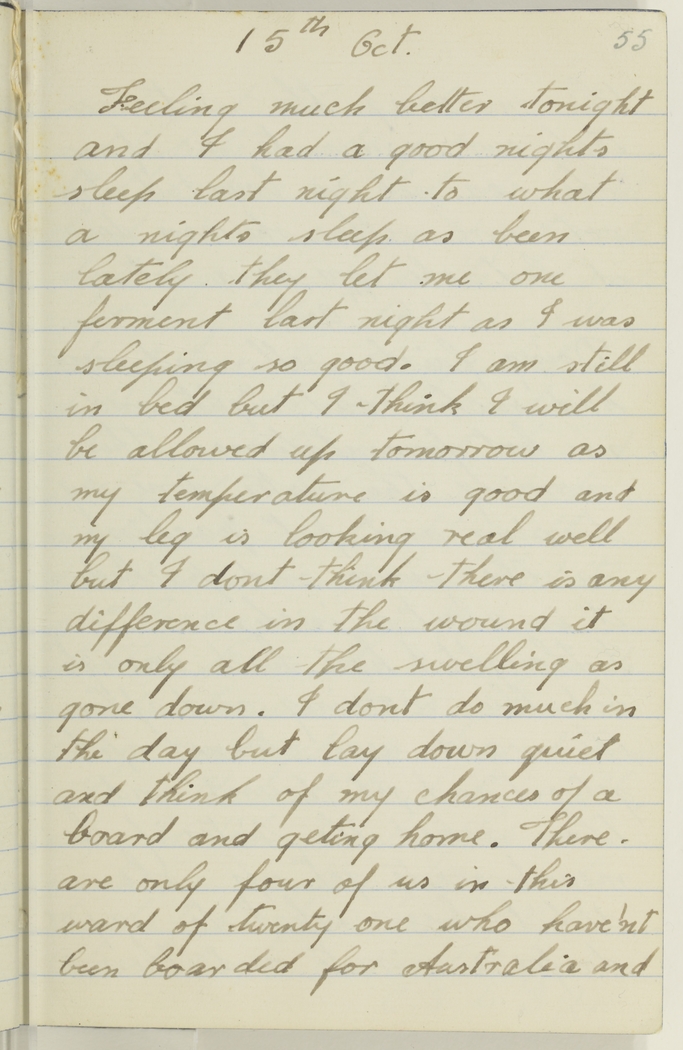 15th Oct.
55
Feeling much better tonight
and I had a good nights
sleep last night to what
a nights sleep as been
lately. they let me one
ferment last night as I was
sleeping so good. I am still
in bed but I think I will
be allowed up tomorrow as
my temperature is good and
my leg is looking real well
but I dont think there is any
difference in the wound it
is only all the swelling as
gone down. I dont do much in
the day but lay down quiet
and think of my chances of a
board and geting home. There
are only four of us in this
ward of twenty one who have'nt
been boarded for Australia and